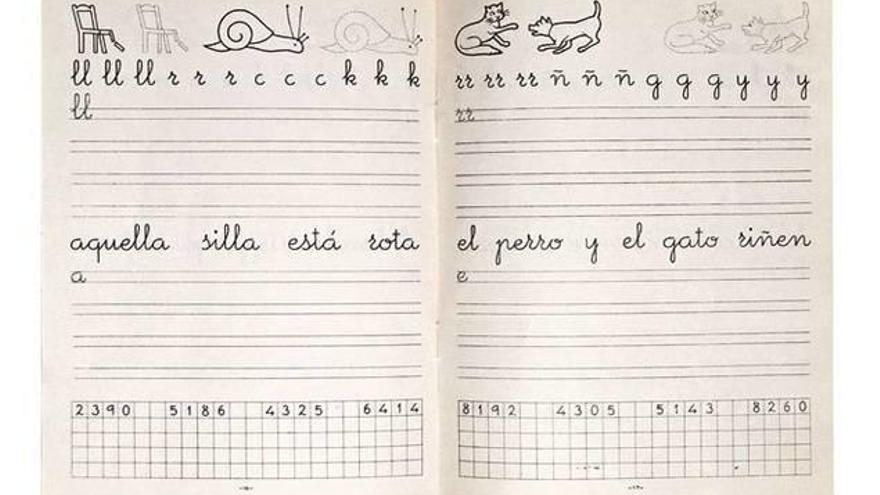 ll ll ll r r r c c c k k k
ll
aquella silla está rota
a
2390 5186 4325 6414
rr rr rr ñ ñ ñ g g g y y y
rr
el perro y el gato riñen
e
8192 4305 5143 8260